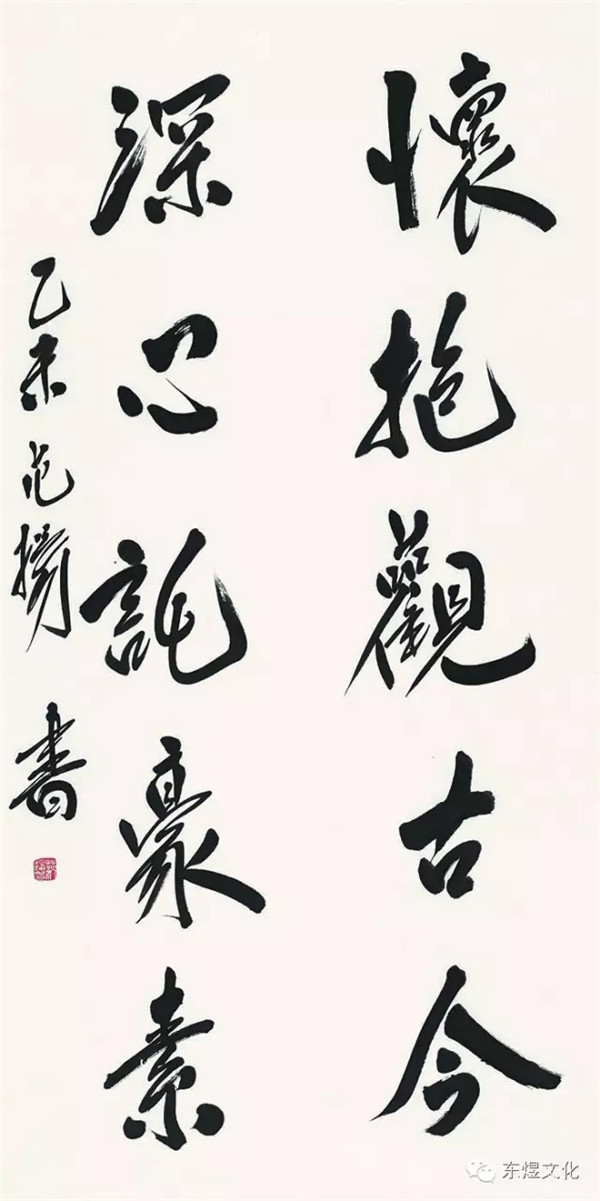 懷抱觀古今
深心託豪素
乙未范揚書
东煜文化